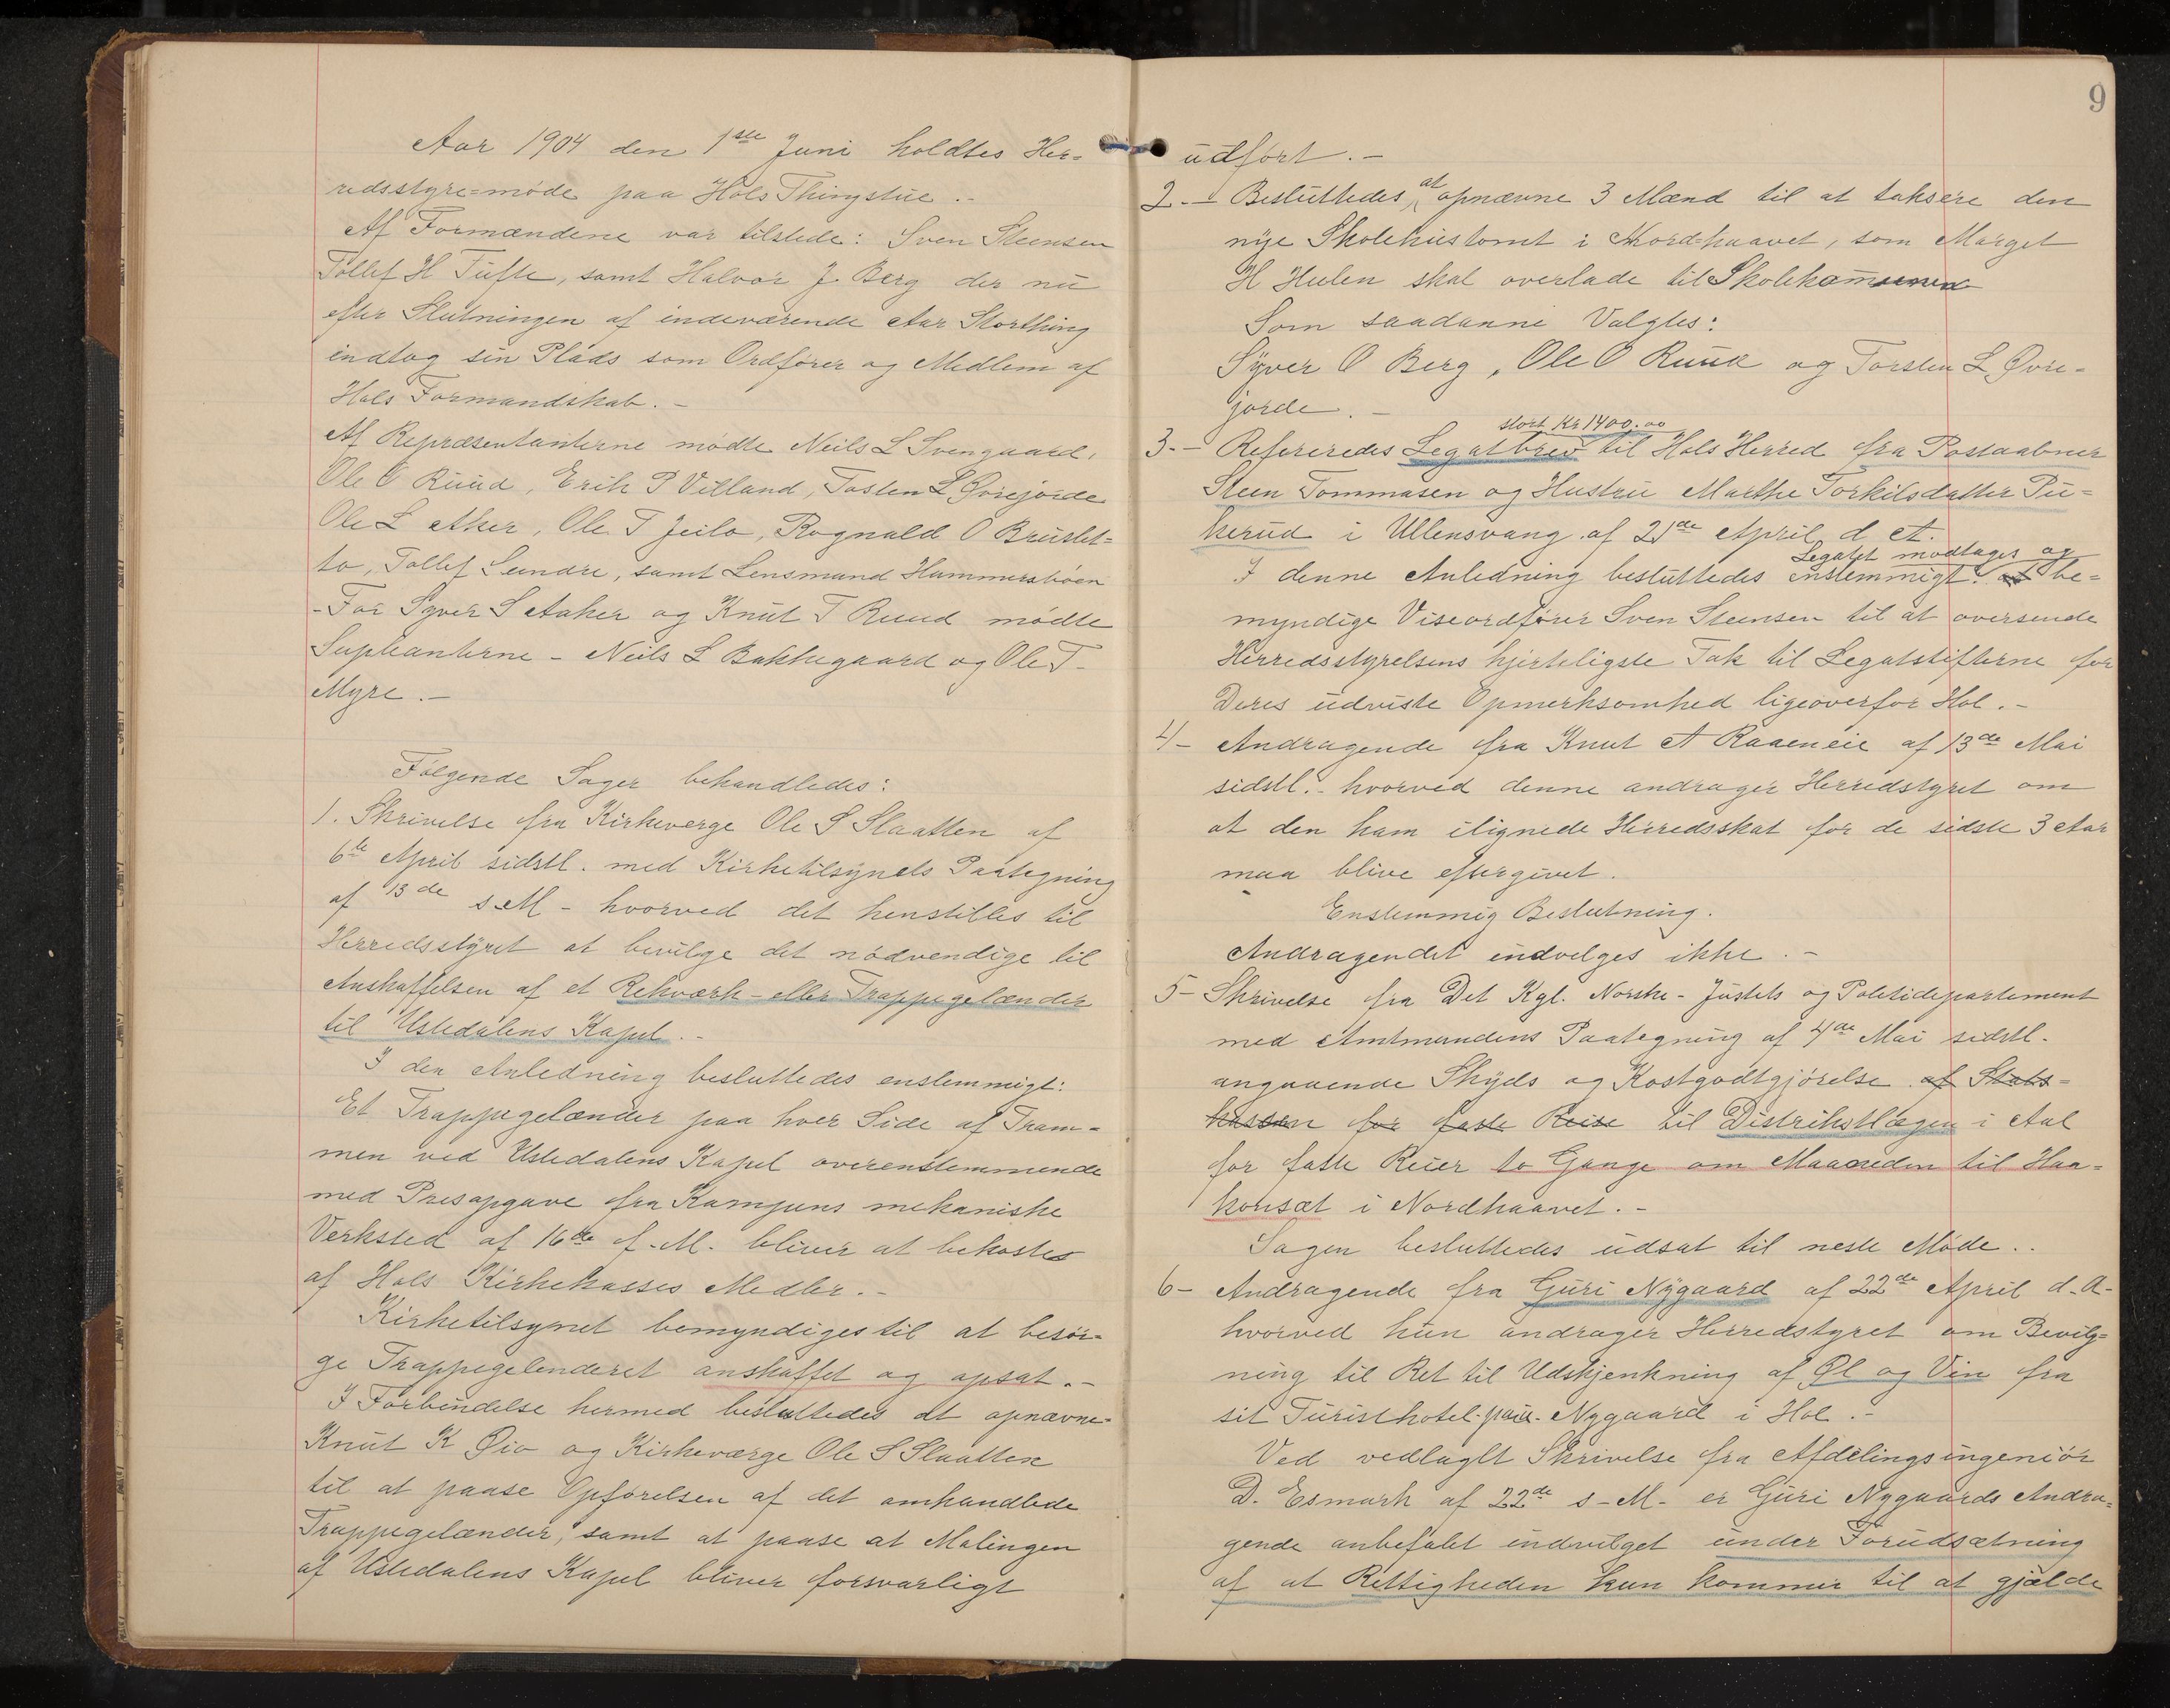 Aar 1904 den 1ste Juni holdtes Her-
redsstyre=møde paa Hols Thingstue.-
Af Formændene var tilstede: Sven Steensen
Tollef H Tufte, samt Halvor J. Berg der nu
efter Slutningen af indeværende Aar Storthing
indtog sin Plads som Ordfører og Medlem af
Hols Formandskab.-
Af Repræsentanterne mødte Neils L Svengaard,
Ole O Ruud, Erik P Villand, Tosten L Øvrejorde
Ole L Aker, Ole T Jeilo, Rognald O Bruslet=
to, Tollef Sundre, samt Lensmand Hammersbøen
-For Syver S Aaker og Knut T Ruud mødte
Supleanterne - Neils L Bakkegaard og Ole T-
Myre.-
Følgende Sager behandledes:
1. Skrivelse fra Kirkeverge Ole S Slaatten af
6te April sidstl. med Kirketilsynets Paategning
af 13de s.M - hvorved det henstilles til
Herredsstyret at bevilge det nødvendige til
Anskaffelsen af et Rekværk-eller Trappegelænder
til Ustedalens Kapel.-
I den Anledning besluttedes enstemmigt:
Et Trappegelænder paa hver Side af Tram-
men ved Ustedalens Kapel overenstemmende
med Prisopgave fra Kamjuns mekaniske
Verksted af 16de f.M. bliver at bekostes
af Hols Kirkekasses Medler.-
Kirketilsynet bemyndiges til at besør=
ge Trappegelenderet anskaffet og opsat.-
I Forbindelse hermed besluttedes at opnævne-
Knut K Øio og Kirkeværge Ole S Slaatten
til at paase Opførelsen af det omhandlede
Trappegelænder, samt at paase at Malingen
af Ustedalens Kapel bliver forsvarligt
9
udført.-
2.- Besluttedes, at opnævne 3 Mænd til at taksere den
nye Skolehustomt i Nord=haavet, som Marget
H Hulen skal overlade til Skolekommunen
Som saadanne Valgtes:
Syver O Berg, Ole O Ruud og Torsten L Øvre-
jorde.-
stort Kr 1400.00
3.- Refereredes Legatbrev til Hols Herred fra Postaabner
Steen Tommasen og Hustru Marthe Torkilsdatter Pu=
kerud i Ullensvang af 21de April d A.
Legatet modtages og
I denne Anledning besluttedes enstemmigt: at be=
myndige Viseordfører Sven Steensen til at oversende
Herredsstyrelsens hjerteligste Tak til Legatstifterne for
Deres udviste Opmerksomhed ligeoverfor Hol.-
4- Andragende fra Knut A Raaeneie af 13de Mai
sidstl.- hvorved denne andrager Herredstyret om
at den ham ilignede Herredsskat for de sidste 3 Aar
maa blive eftergivet.
Enstemmig Beslutning.
Andragendet indvelges ikke.-
5- Skrivelse fra Det Kgl. Norske-Justets og Politidepartement
med Amtmandens Paategning af 4de Mai sidstl.
angaaende Skyds og Kostgodtgjørelse af Stats=
kassen for faste Reise til Distrikstlægen i Aal
for faste Reier to Gange om Maaneden til Haa=
konsæt i Nordhaavet.-
Sagen besluttedes udsat til neste Møde..
6- Andragende fra Guri Nygaard af 22de April d.A-
hvorved hun andrager Herredstyret om Bevilg=
ning til Ret til Udskjenkning af Øl og Vin fra
sit Turisthotel-paa-Nygaard i Hol.-
Ved vedlagtt Skrivelse fra Afdelingsingeniør
D. Esmark af 22de s-M- er Guri Nygaards Andra=
gende anbefalet indvilget under Forudsætning
af at Rettigheden kun kommer til at gjælde